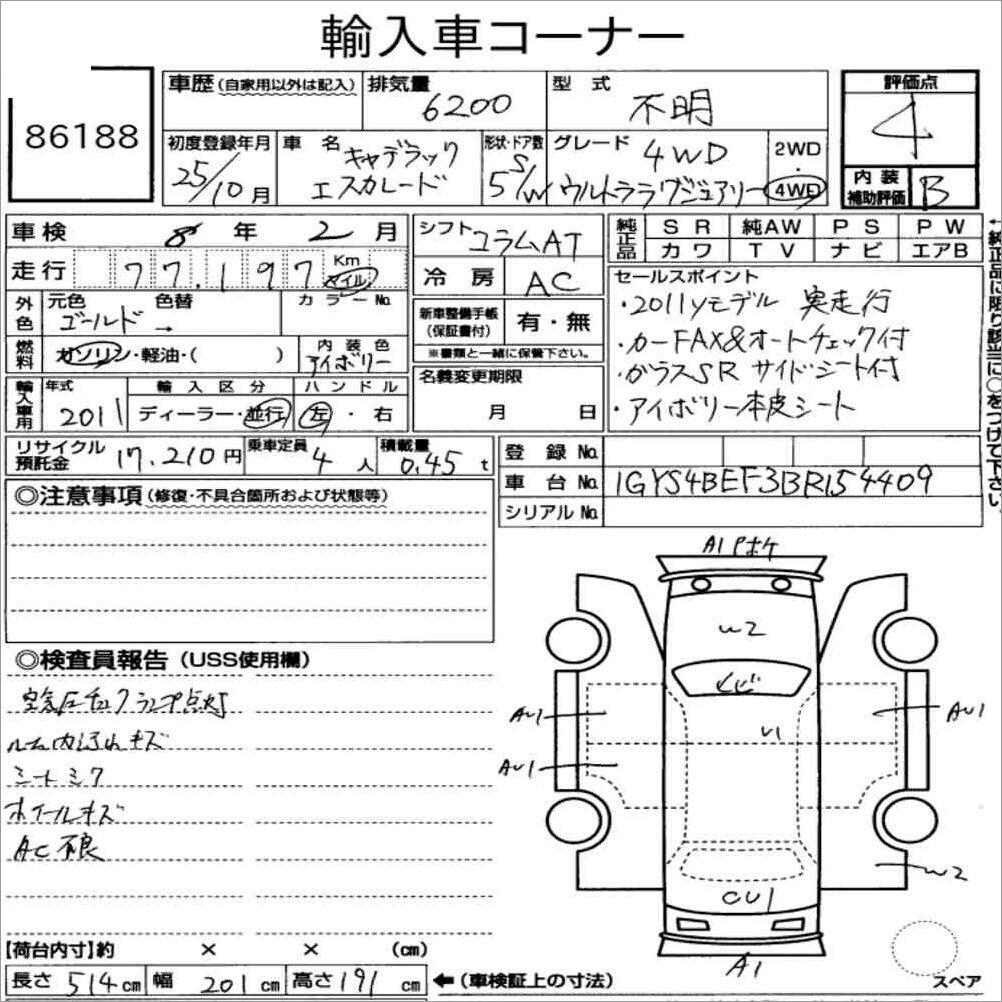 輸入車コーナー
86188
車歴 (自家用以外は記入)
排気量 6200
型式 不明
評価点 4
初度登録年月 25/10月
車名 キャデラック エスカレード
形状・ドア数 5 S/W
グレード 4WD ウルトララグジュアリー
2WD ・ 4WD
内装補助評価 B
車検 8年 2月
シフト コラムAT
純正品 SR 純AW PS PW
カワ TV ナビ エアB
走行 77,197 Km マイル
冷房 AC
セールスポイント
・2011yモデル 実走行
・カーFAX&オートチェック付
・ガラスSR サイドシート付
・アイボリー本皮シート
←純正品に限り該当に○をつけて下さい。
外色 元色 ゴールド → 色替 カラーNo.
新車整備手帳(保証書付) 有・無
※書類と一緒に保管下さい。
燃料 ガソリン・軽油・( )
内装色 アイボリー
名義変更期限 月 日
輸入車用 年式 2011
輸入区分 ディーラー・並行
ハンドル 左・右
リサイクル預託金 17,210円
乗車定員 4人
積載量 0.45t
登録No.
車台No. 1GYS4BEF3BR154409
シリアルNo.
◎注意事項(修復・不具合箇所および状態等)
A1 Pホケ
W2
ヒビ
AU1
U1
AU1
AU1
W2
CU1
A1
スペア
◎検査員報告(USS使用欄)
空気圧チェックランプ点灯
ルーム内汚れキズ
シートシワ
ホイールキズ
AC不良
【荷台内寸】約 × × (cm)
長さ 514cm 幅 201cm 高さ 191cm ←(車検証上の寸法)